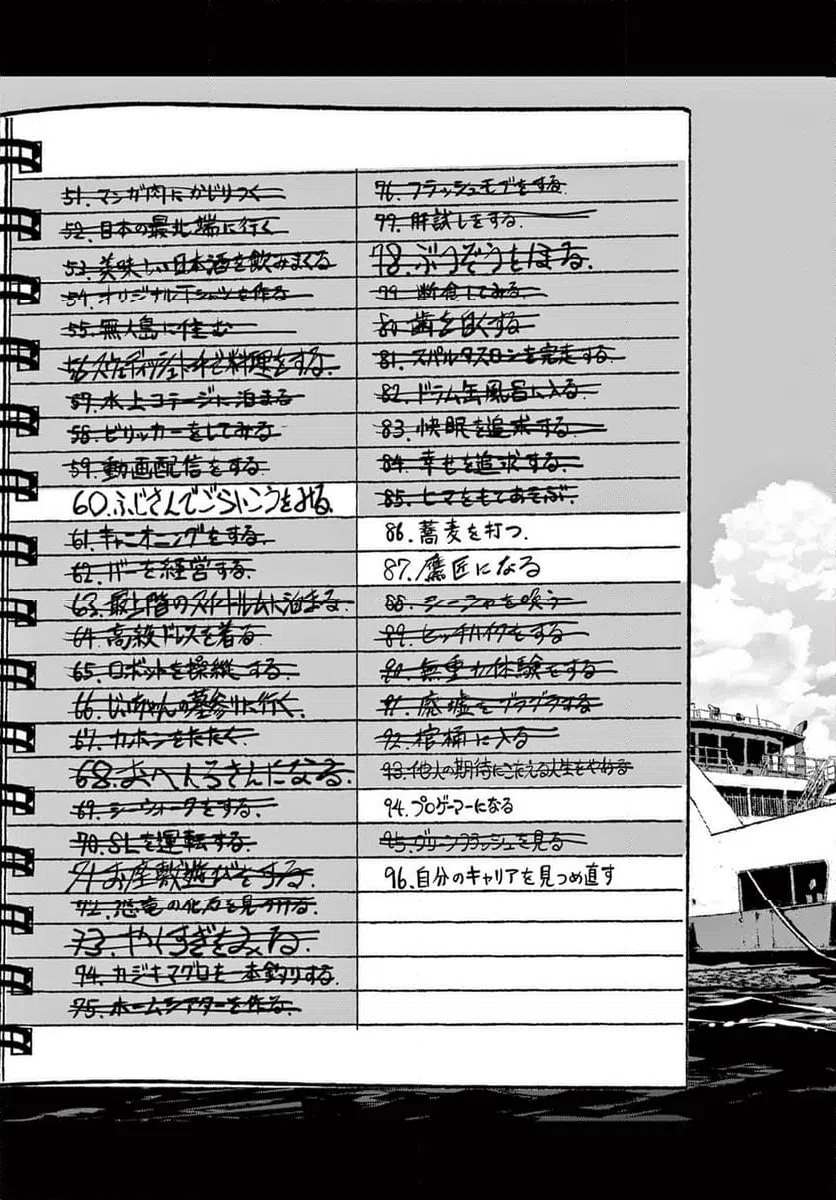 51. マンガ肉にかじりつく
52. 日本の最北端に行く
53. 美味しい日本酒を飲みまくる
54. オリジナルTシャツを作る
55. 無人島に住む
56. スウェディッシュトーチで料理をする
57. 水上コテージに泊まる
58. ビリッカーをしてみる
59. 動画配信をする
60. ふじさんでごらいこうをみる
61. キャニオニングをする
62. バーを経営する
63. 最上階のスイートルームに泊まる
64. 高級ドレスを着る
65. ロボットを操縦する
66. じいちゃんの墓参りに行く
67. カホンをたたく
68. おへんろさんになる
69. シーウォークをする
70. SLを運転する
71. お座敷遊びをする
72. 恐竜の化石を見つける
73. やくすぎをみる
74. カジキマグロを一本釣りする
75. ホームシアターを作る
76. フラッシュモブをする
77. 肝試しをする
78. ぶつぞうをほる
79. 断食してみる
80. 歯を白くする
81. スパルタスロンを完走する
82. ドラム缶風呂に入る
83. 快眠を追求する
84. 幸せを追求する
85. ヒマをもてあそぶ
86. 蕎麦を打つ
87. 鷹匠になる
88. シーシャを吸う
89. ヒッチハイクをする
90. 無重力体験をする
91. 廃墟をブラブラする
92. 棺桶に入る
93. 他人の期待にこたえる人生をやめる
94. プロゲーマーになる
95. グリーンフラッシュを見る
96. 自分のキャリアを見つめ直す